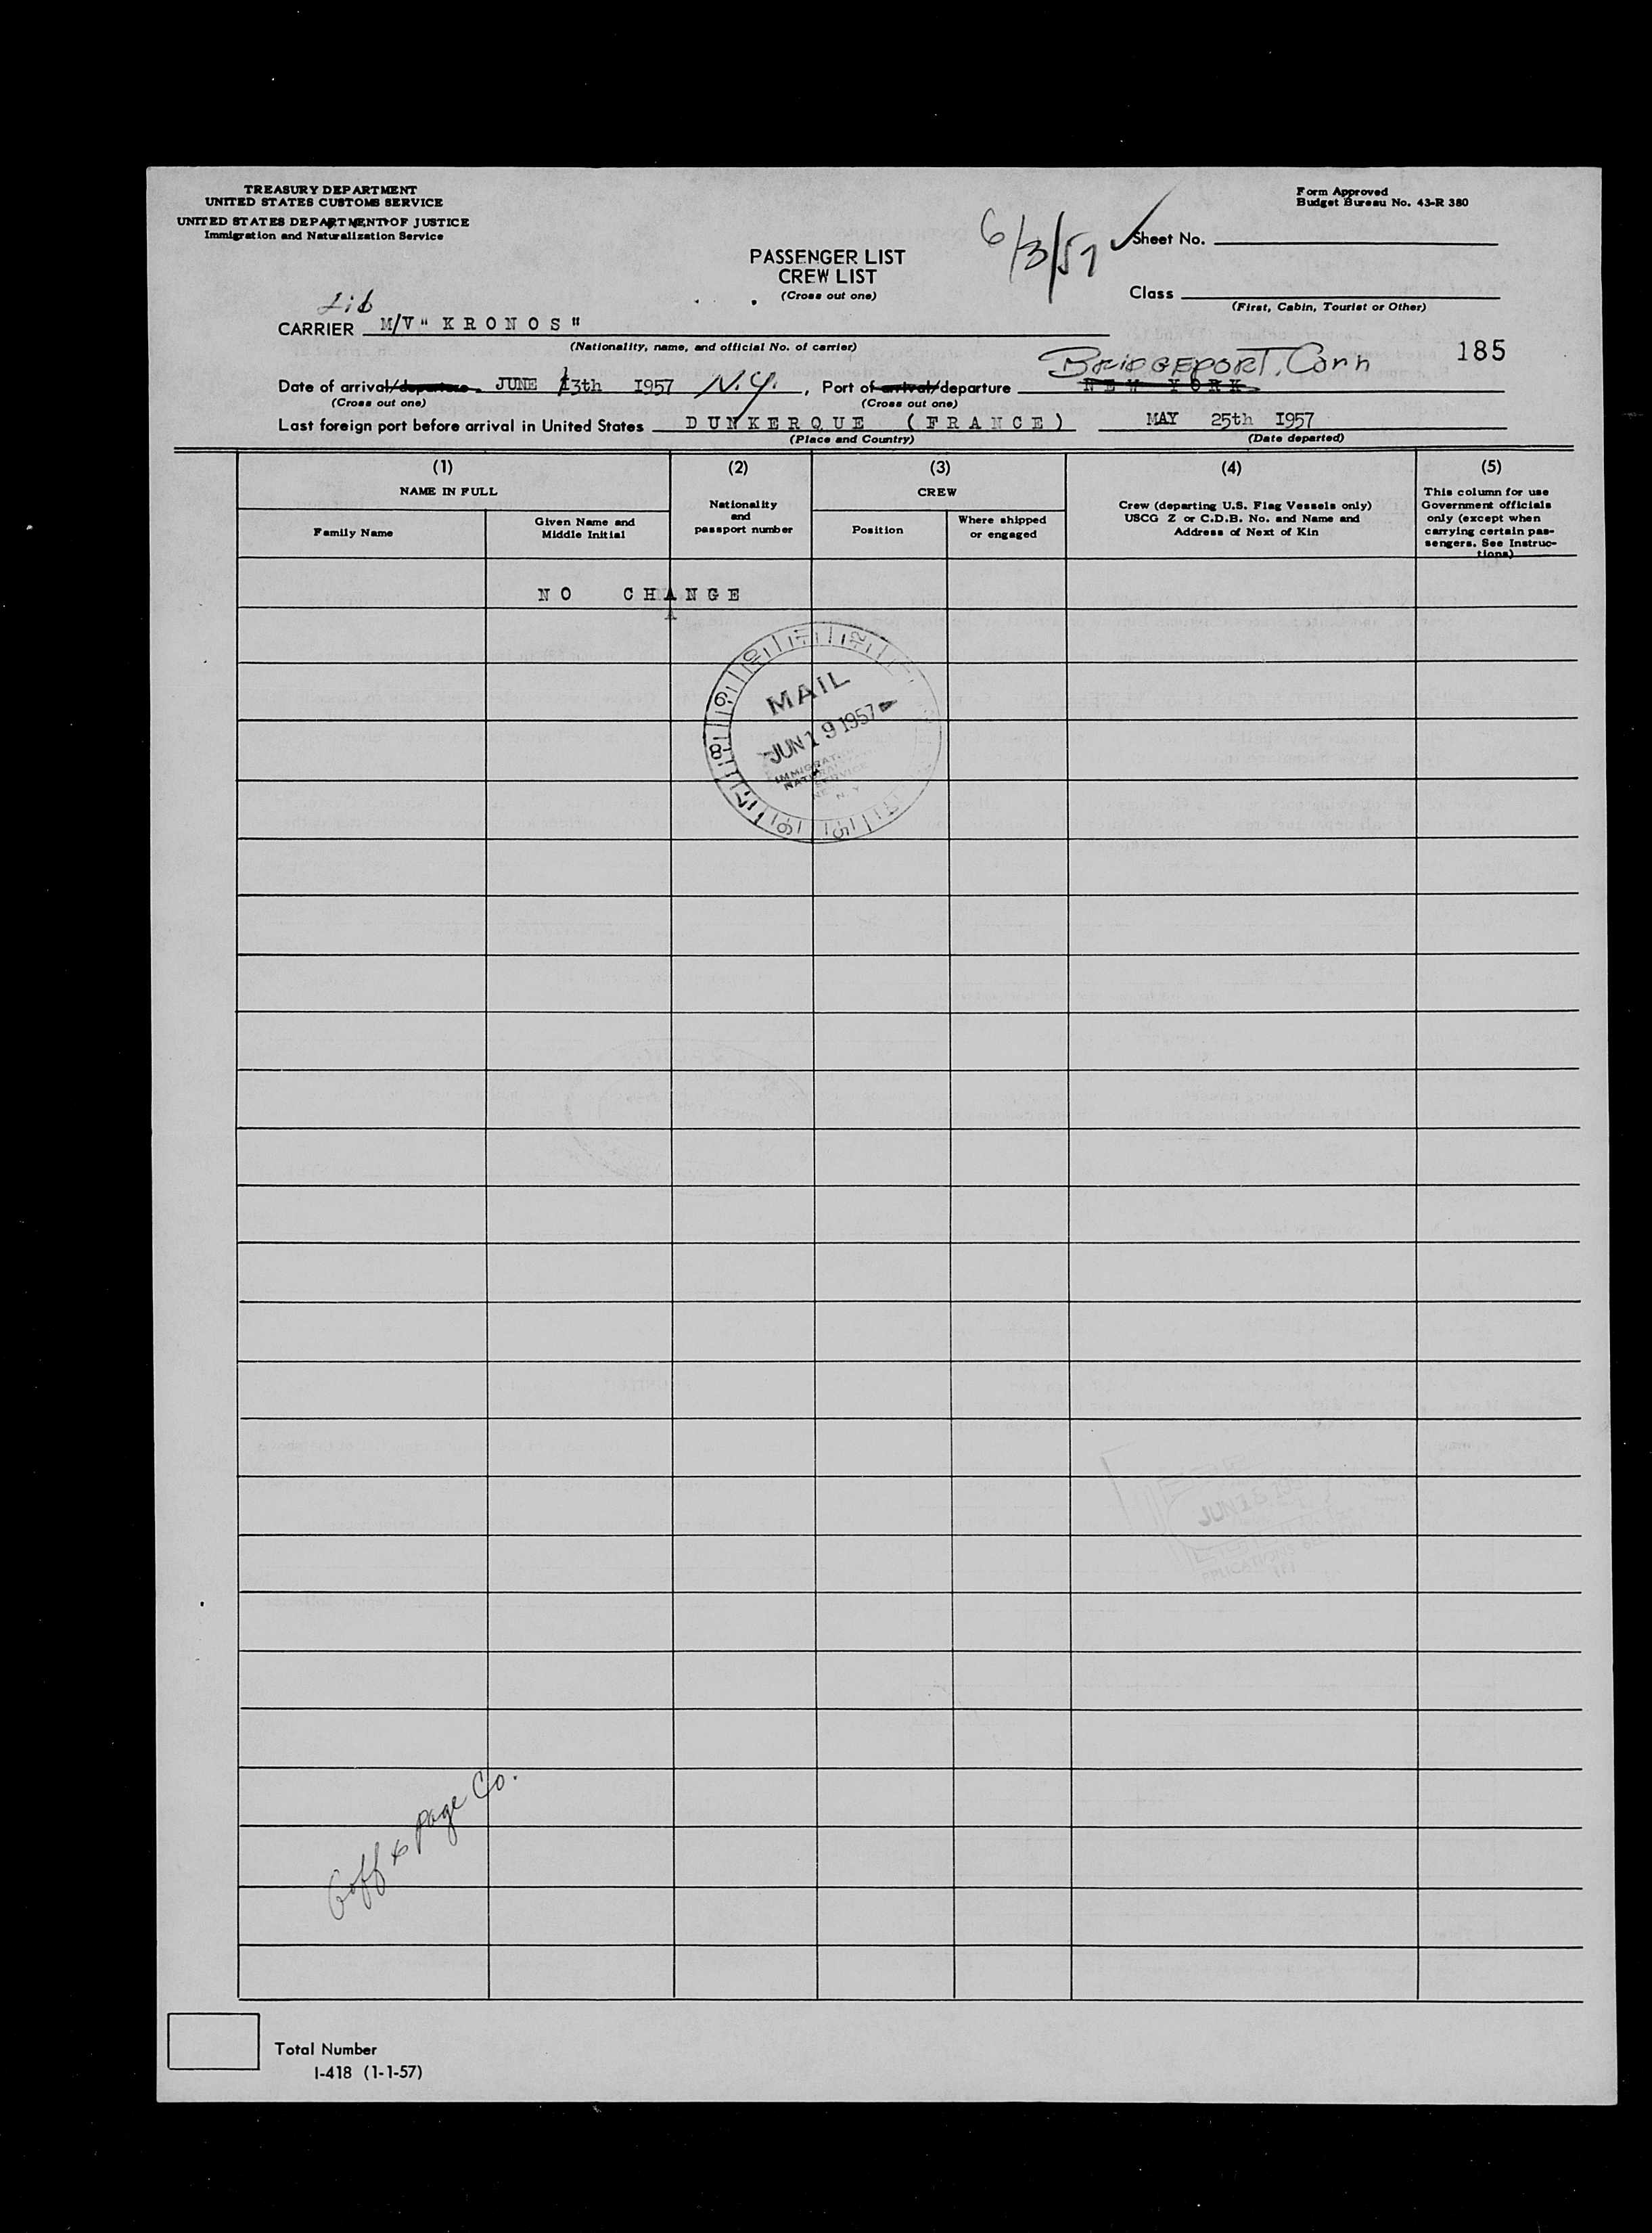 TREASURY DEPARTMENT
UNITED STATES CUSTOMS SERVICE
UNITED STATES DEPARTMENT OF JUSTICE
Immigration and Naturalization Service
Form Approved
Budget Bureau No. 43-R 380
6/3/57
Sheet No.
PASSENGER LIST
CREW LIST
(Cross out one)
Class
(First, Cabin, Tourist or Other)
Lib
CARRIER M/V "KRONOS"
(Nationality, name, and official No. of carrier)
185
BRIDGEPORT, Conn
Date of arrival/departure JUNE 13th 1957 N.Y., Port of arrival/departure NEW YORK
(Cross out one) (Cross out one)
Last foreign port before arrival in United States DUNKERQUE (FRANCE) MAY 25th 1957
(Place and Country) (Date departed)
(1) (2) (3) (4) (5)
NAME IN FULL
Family Name
Given Name and
Middle Initial
Nationality
and
passport number
CREW
Position
Where shipped
or engaged
Crew (departing U.S. Flag Vessels only)
USCG Z or C.D.B. No. and Name and
Address of Next of Kin
This column for use
Government officials
only (except when
carrying certain pas-
sengers. See Instruc-
tions)
NO CHANGE
MAIL
JUN 19 1957
Goff & Page Co.
Total Number
I-418 (1-1-57)